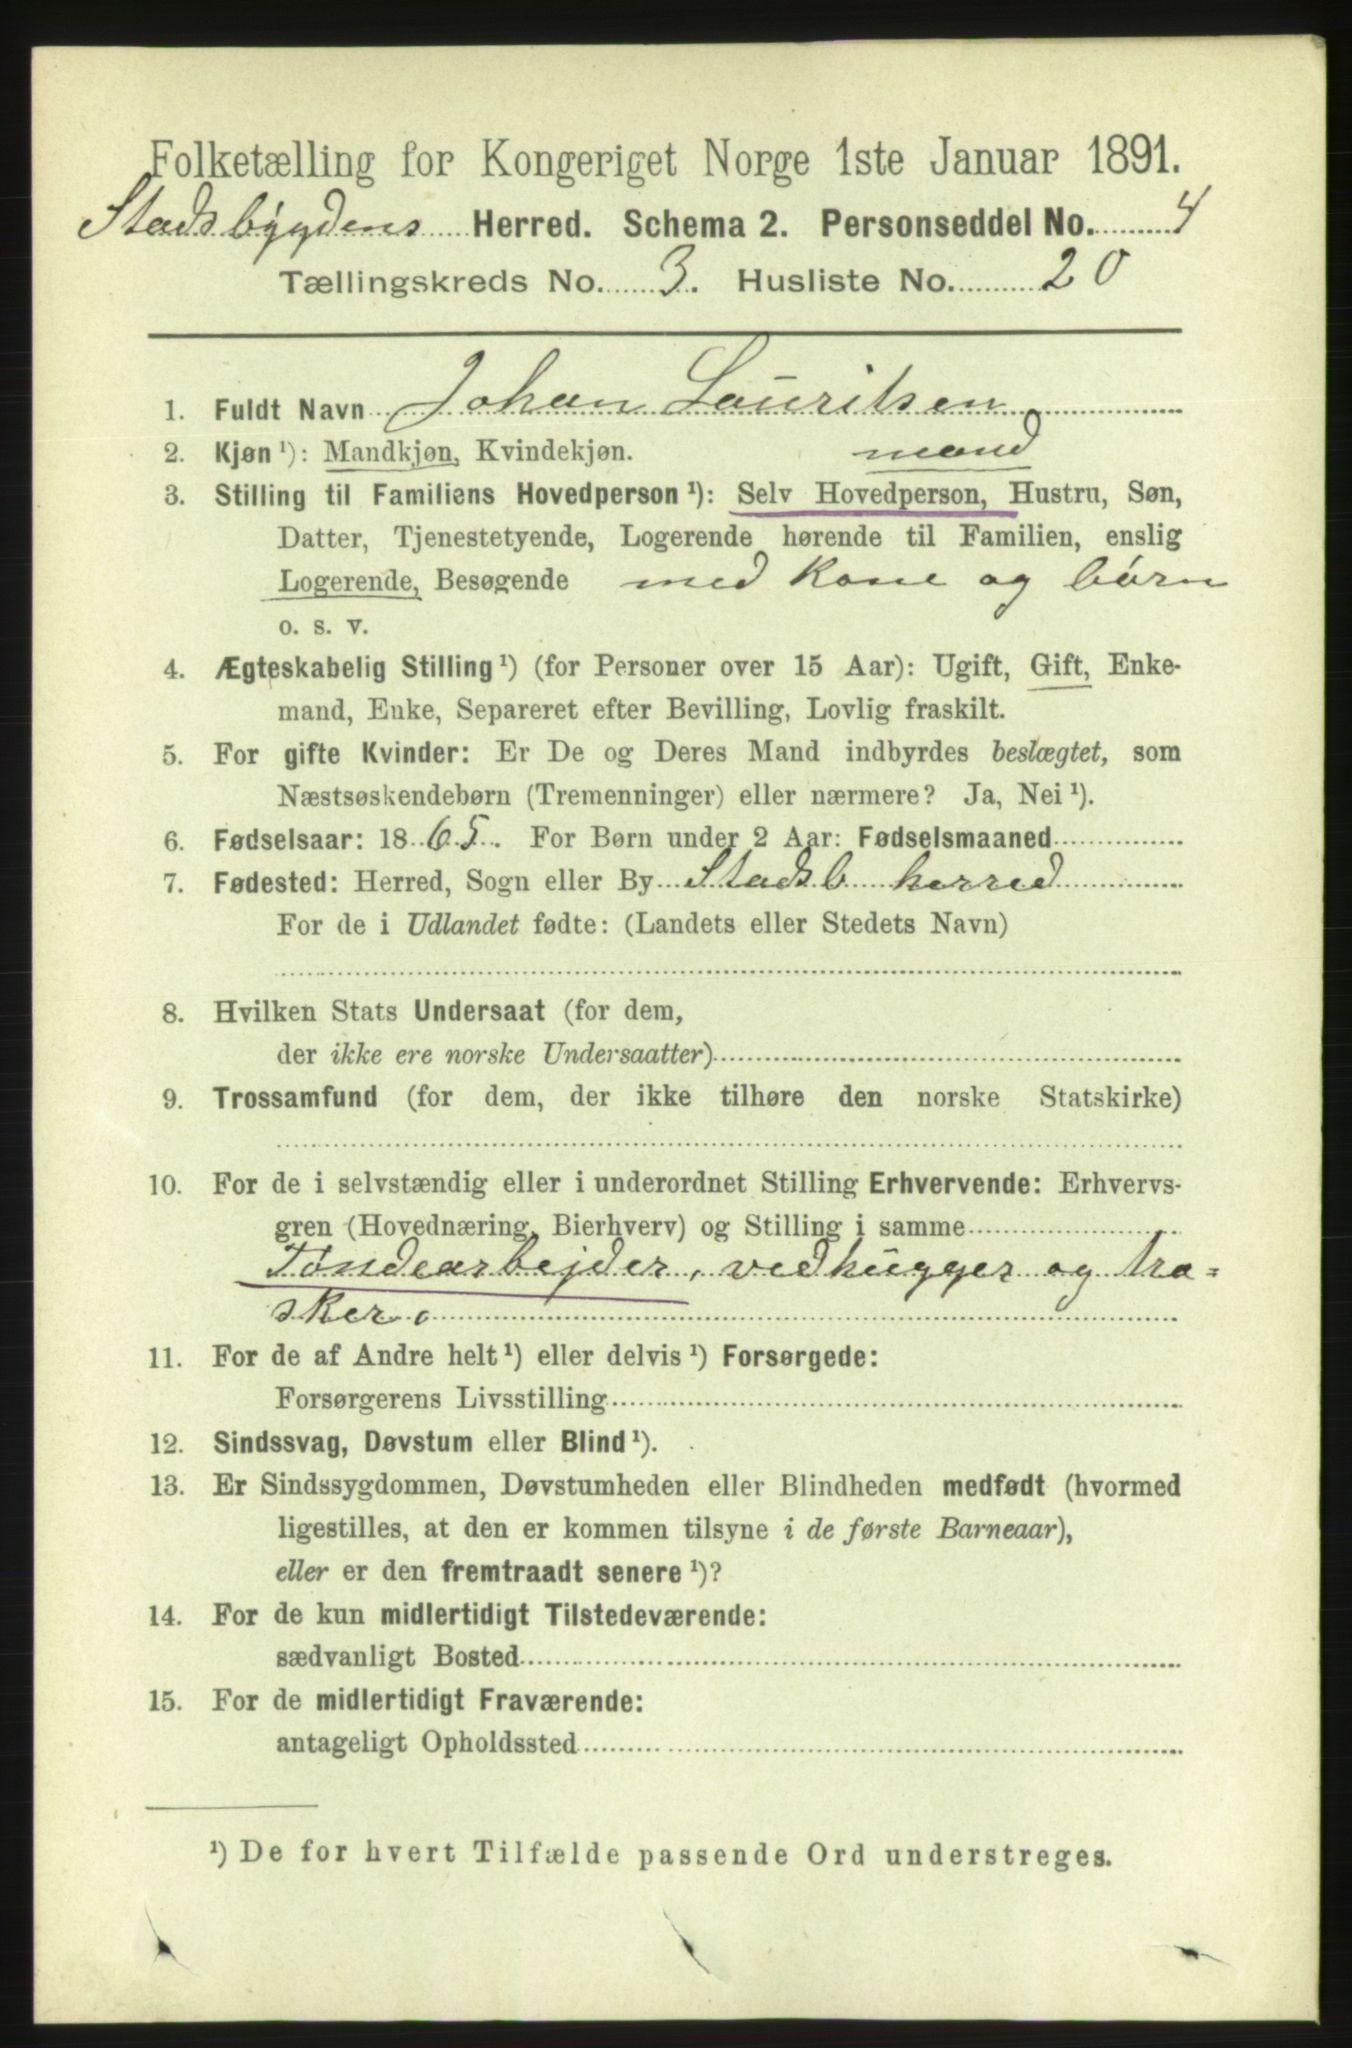 Folketælling for Kongeriget Norge 1ste Januar 1891.
Stadsbygdens Herred. Schema 2. Personseddel No. 4
Tællingskreds No. 3. Husliste No. 20
1. Fuldt Navn Johan Lauritsen
2. Kjøn ¹): Mandkjøn, Kvindekjøn. mand
3. Stilling til Familiens Hovedperson ¹): Selv Hovedperson, Hustru, Søn,
Datter, Tjenestetyende, Logerende hørende til Familien, enslig
Logerende, Besøgende med Kone og börn
o. s. v.
4. Ægteskabelig Stilling ¹) (for Personer over 15 Aar): Ugift, Gift, Enke-
mand, Enke, Separeret efter Bevilling, Lovlig fraskilt.
5. For gifte Kvinder: Er De og Deres Mand indbyrdes beslægtet, som
Næstsøskendebørn (Tremenninger) eller nærmere? Ja, Nei ¹).
6. Fødselsaar: 1865. For Børn under 2 Aar: Fødselsmaaned
7. Fødested: Herred, Sogn eller By Stadsb herred
For de i Udlandet fødte: (Landets eller Stedets Navn)
8. Hvilken Stats Undersaat (for dem,
der ikke ere norske Undersaatter)
9. Trossamfund (for dem, der ikke tilhøre den norske Statskirke)
10. For de i selvstændig eller i underordnet Stilling Erhvervende: Erhvervs-
gren (Hovednæring, Bierhverv) og Stilling i samme
Töndearbejder, vedhugger og tra=
sker.
11. For de af Andre helt ¹) eller delvis ¹) Forsørgede:
Forsørgerens Livsstilling
12. Sindssvag, Døvstum eller Blind ¹).
13. Er Sindssygdommen, Døvstumheden eller Blindheden medfødt (hvormed
ligestilles, at den er kommen tilsyne i de første Barneaar),
eller er den fremtraadt senere ¹)?
14. For de kun midlertidigt Tilstedeværende:
sædvanligt Bosted
15. For de midlertidigt Fraværende:
antageligt Opholdssted
¹) De for hvert Tilfælde passende Ord understreges.